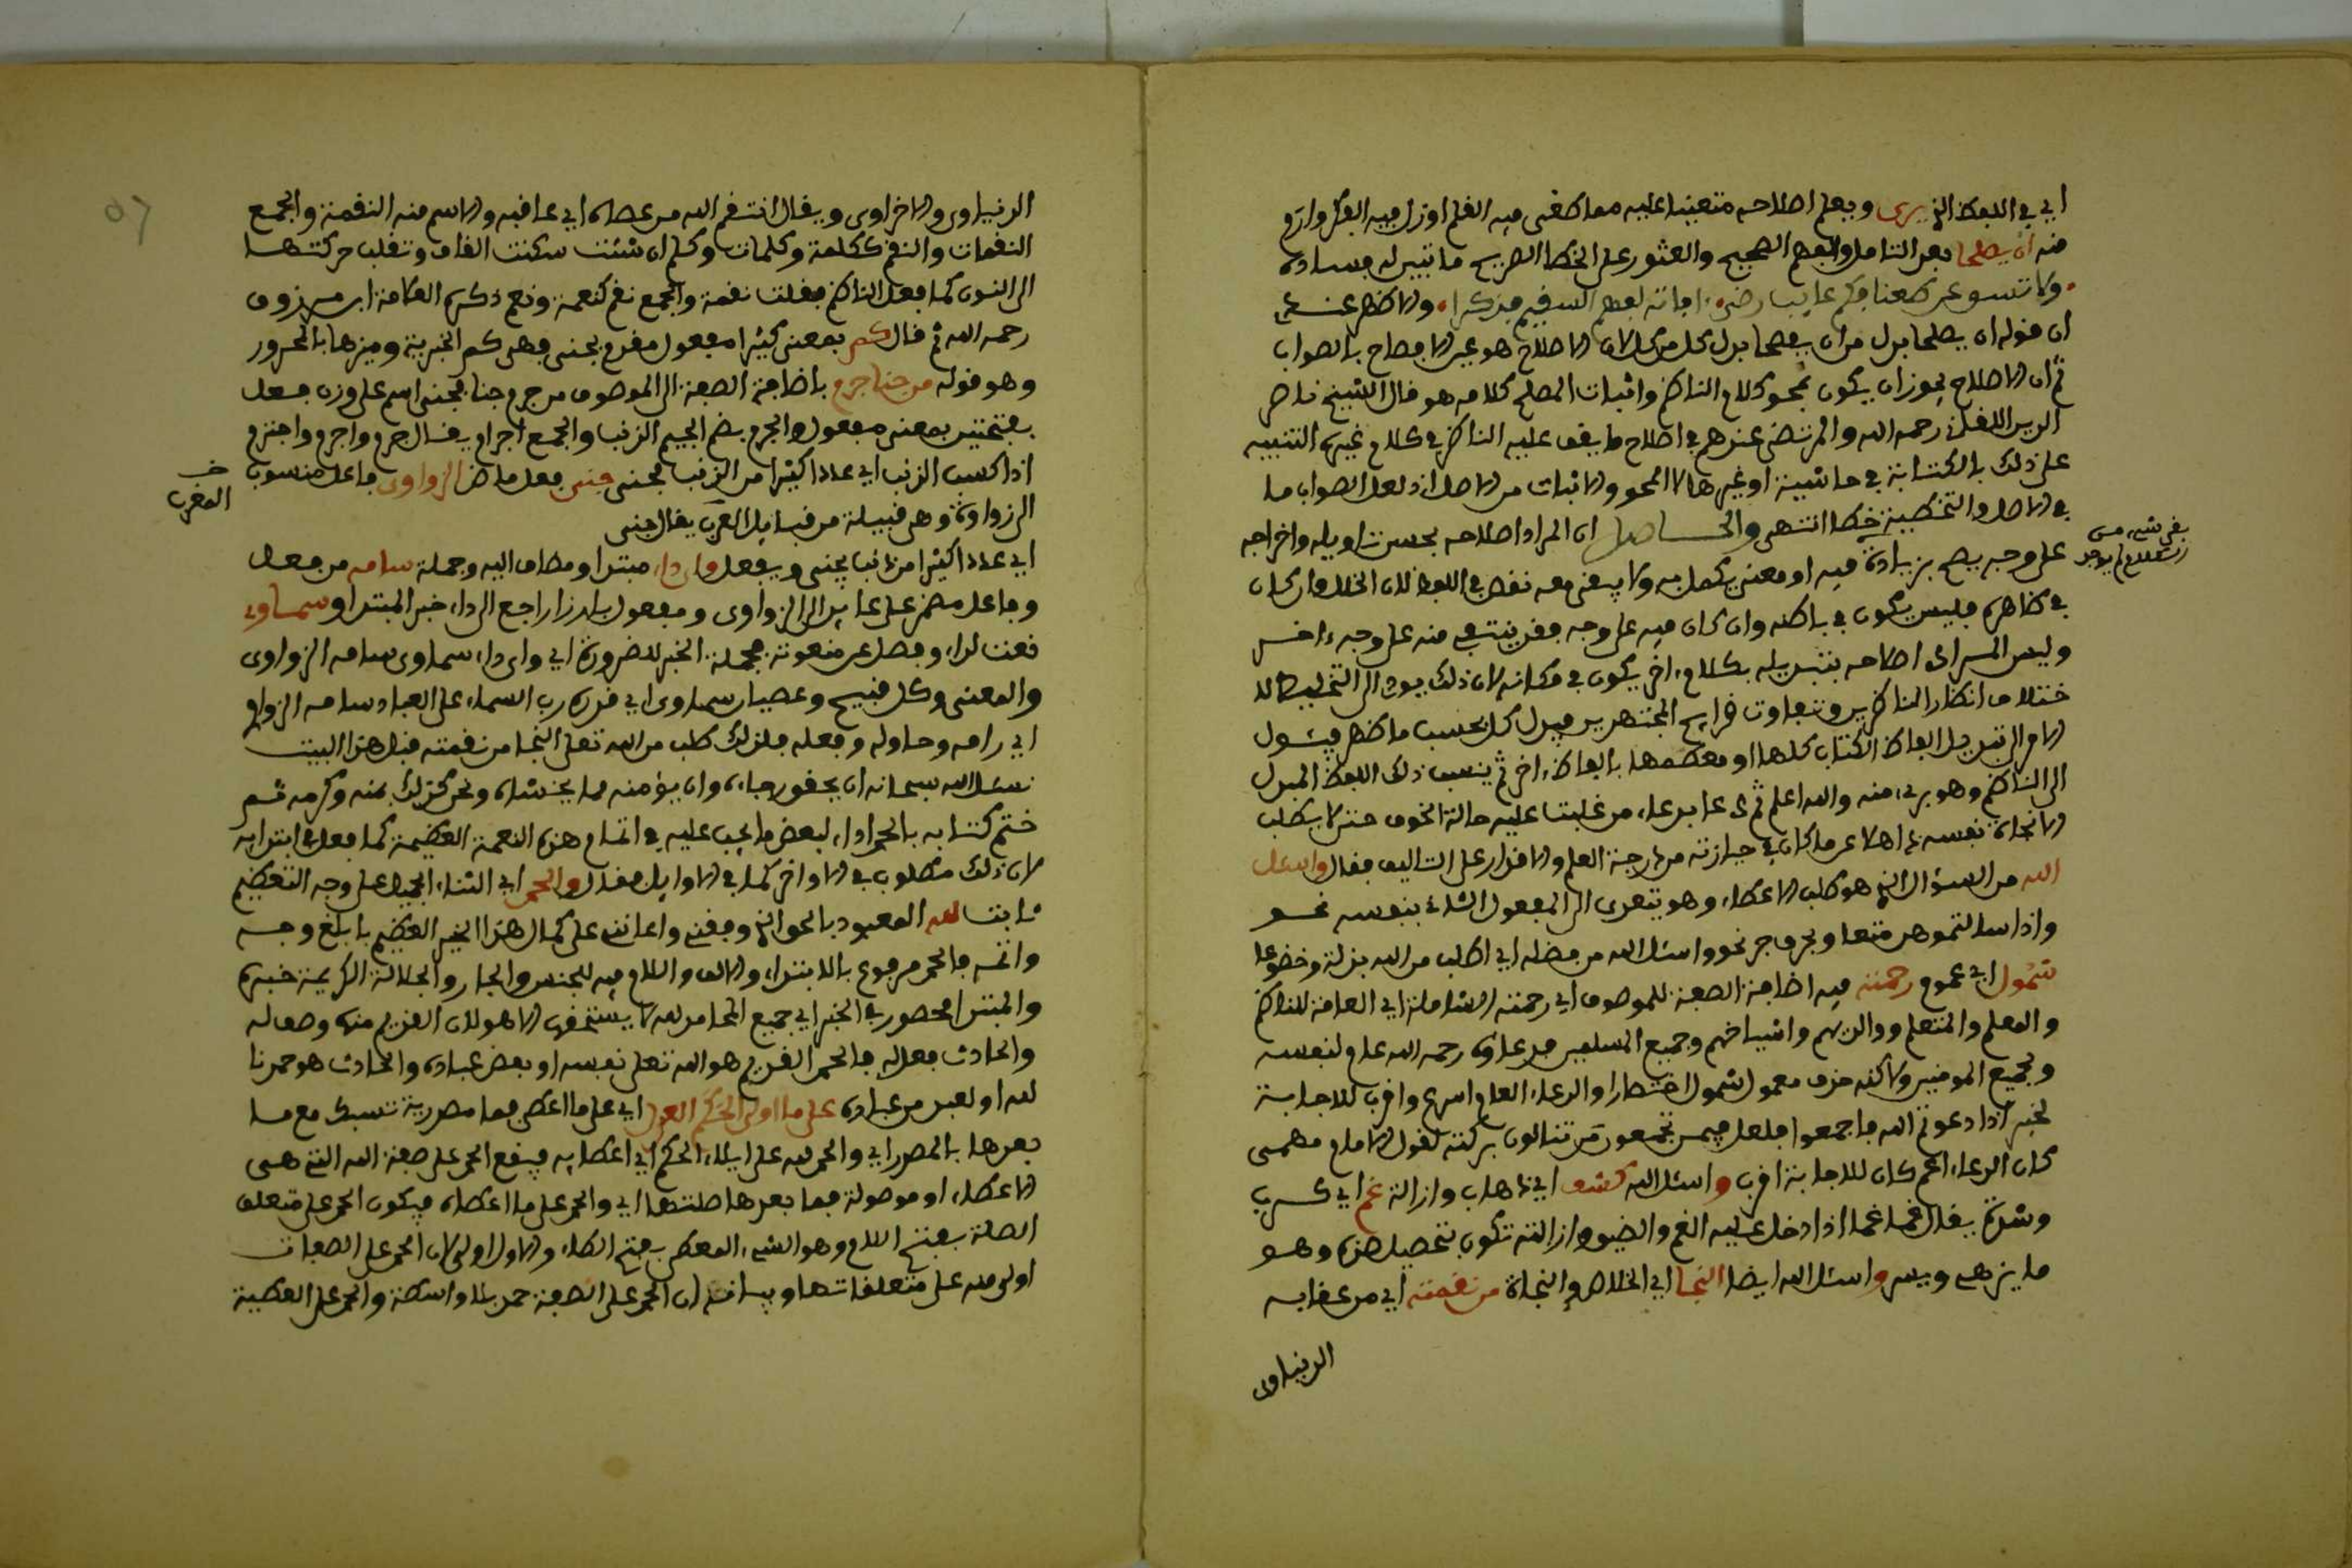 اي في اللفظ الذي يرى ويعلم اصلاحه متعينا عليه مما طغى فيه القلم او زل فيه الفكر وارم
منه ان يصلحا بعد التامل والفهم الصحيح والعثور على الخطا الصريح ما تبين له فساده
ان قوله ان يصلحا بدل من ان يفصحا بدل كل من كل لان الاصلاح هو عين الافصاح بالصواب
ثم ان الاصلاح يجوز ان يكون بمحو كلام الناظم واثبات المصلح كلامه هو قال الشيخ ناصر
الدين اللقاني رحمه الله والمرتضى عندهم في اصلاح ما يقف عليه الناظر في كلام غيره التنبيه
على ذلك بالكتابة في حاشية او غيرها لا المحو والاثبات من الاصل اذ لعل الصواب ما
في الاصل والتخطية خطا انتهى والحاصل ان المراد اصلاحه بحسن تاويله واخراجه
على وجه يصح بزيادة فيه او معنى يكمل به ولا يبقى معه نقص في اللفظ لان الخلل وان كان
في ظاهره فليس يكون في باطنه وان كان فيه على وجه فقد ينتفي منه على وجه ءاخر
وليس المراد اصلاحه بتبديله بكلام ءاخر يكون في مكانه لان ذلك يودي الى التخليط لا
ختلاف انظار الناظرين وتفاوت قرايح المجتهدين فيبدل كل بحسب ما ظهر فيئول
الامر الى تبديل الفاظ الكتاب كلها او معظمها بالفاظ ءاخر ثم ينسب ذلك اللفظ المبدل
الى الناظم وهو برىء منه والله اعلم ثم دعا بدعاء من غلبت عليه حالة الخوف حتى لا يطلب
الا نجاة نفسه ذاهلا عما كان في حيازته من درجة العلم والاقرار على التاليف فقال واسئل
الله من السؤال الذي هو طلب الاعطاء وهو يتعدى الى المفعول الثاني بنفسه نحو
واذا سالتموهن متاعا وبحرف جر نحو واسئلوا الله من فضله اي اطلب من الله بذلة وخضوع
شمول اي عموم رحمته فيه اضافة الصفة للموصوف اي رحمته الشاملة اي العامة للناظم
والمعلم والمتعلم ووالديهم واشياخهم وجميع المسلمين فدعاؤه رحمه الله عام لنفسه
ولجميع المومنين ولاكنه حذف معمول شمول اختصارا والدعاء العام اسرع واقرب للاجابة
لخبر اذا دعوتم الله فاجمعوا فلعل فيمن تجمعون من تنالون بركته لقول الامام مهمى
كان الدعاء اعم كان للاجابة اقرب واسئل الله كشف اي ذهاب وازالة غم اي كرب
وشدة يقال غما غما اذا دخل عليه الغم والضيق وازالته تكون بتحصيل ضده وهو
ما يذهب ويسر واسئل الله ايضا النجا اي الخلاص والنجاة من نقمته اي من عقابه
الدنياوي
الدنياوي والاخراوي ويقال انتقم الله من عصاه اي عاقبه والاسم منه النقمة والجمع
النقمات والنقم ككلمة وكلمات وكلم ان شئت سكنت القاف وتقلب حركتها
الى النون كما فعل الناظم فقلت نقمة والجمع نقم كنعمة ونعم ذكره العلامة ابن مرزوق
رحمه الله ثم قال كم بمعنى كثيرا مفعول مقدم بجنى فهي كم الخبرية وميزها بالمجرور
وهو قوله من جنا جرم باضافة الصفة الى الموصوف من جرم جنا فجنى اسم على وزن فعل
بفتحتين بمعنى مفعول والجرم بضم الجيم الذنب والجمع اجرام يقال جرم واجرم واجترم
اذا كسب الذنب اي عددا كثيرا من الذنب لجنى جنى فعل ماض الزواوي فاعل منسوب
الزواوة وهي قبيلة من قبايل العرب يقال جنى
المغرب
اي عددا كثيرا من ذنب يجنى ويفعل واي داء مبتدا ومضاف اليه وجملة سامه من فعل
وفاعل مضمر على عايد الى الزواوي ومفعول بارزا راجع الى داء خبر المبتدا وسماوي
نعت لداء وفصل عن منعوته بجملة الخبر للضرورة اي واي داء سماوي سامه الزواوي
والمعنى وكل قبيح وعصيان سماوي اي قدره رب السماء على العباد سامه الزواوي
اي رامه وحاوله وفعله فلذلك طلب من الله تعالى النجا من نقمته قبل هذا البيت
نسئل الله سبحانه ان يحقق رجاءه وان يؤمنه مما يخشاه ونحن كذلك بمنه وكرمه ثم
ختم كتابه بالحمد اداء لبعض ما يجب عليه في اتمام هذه النعمة العظيمة كما فعل في ابتدايه
لان ذلك مطلوب في الاواخر كما في الاوايل فقال والحمد اي الثناء الجميل على وجه التعظيم
ثابت لله المعبود بالحق الذي وفقني واعانني على كمال هذا الخير العظيم بابلغ وجه
واتمه فالحمد مرفوع بالابتداء والالف واللام فيه للجنس والجار والجلالة الكريمة خبره
والمبتدا محصور في الخبر اي جميع المحامد لله لا يستحقها الا هو لان القديم منها وصف له
والحادث فعل له فالحمد القديم هو الله تعالى نفسه او بعض عباده والحادث هو حمدنا
لله او لعبد من عباده على ما اولى الحكم العدل اي على ما اعطى فما مصدرية تسبك مع ما
بعدها بالمصدر اي والحمد لله على ايلاء الحكم اي اعطايه فيقع الحمد على صفة الله التي هي
الاعطاء او موصولة فما بعدها صلتها اي والحمد على ما اعطاه فيكون الحمد على متعلق
الصلة بفتح اللام وهو الشيء المعطى بفتح الطاء والاول اولى لان الحمد على الصفات
اولى منه على متعلقاتها وبيانه ان الحمد على الصفة حمد بلا واسطة والحمد على العطية